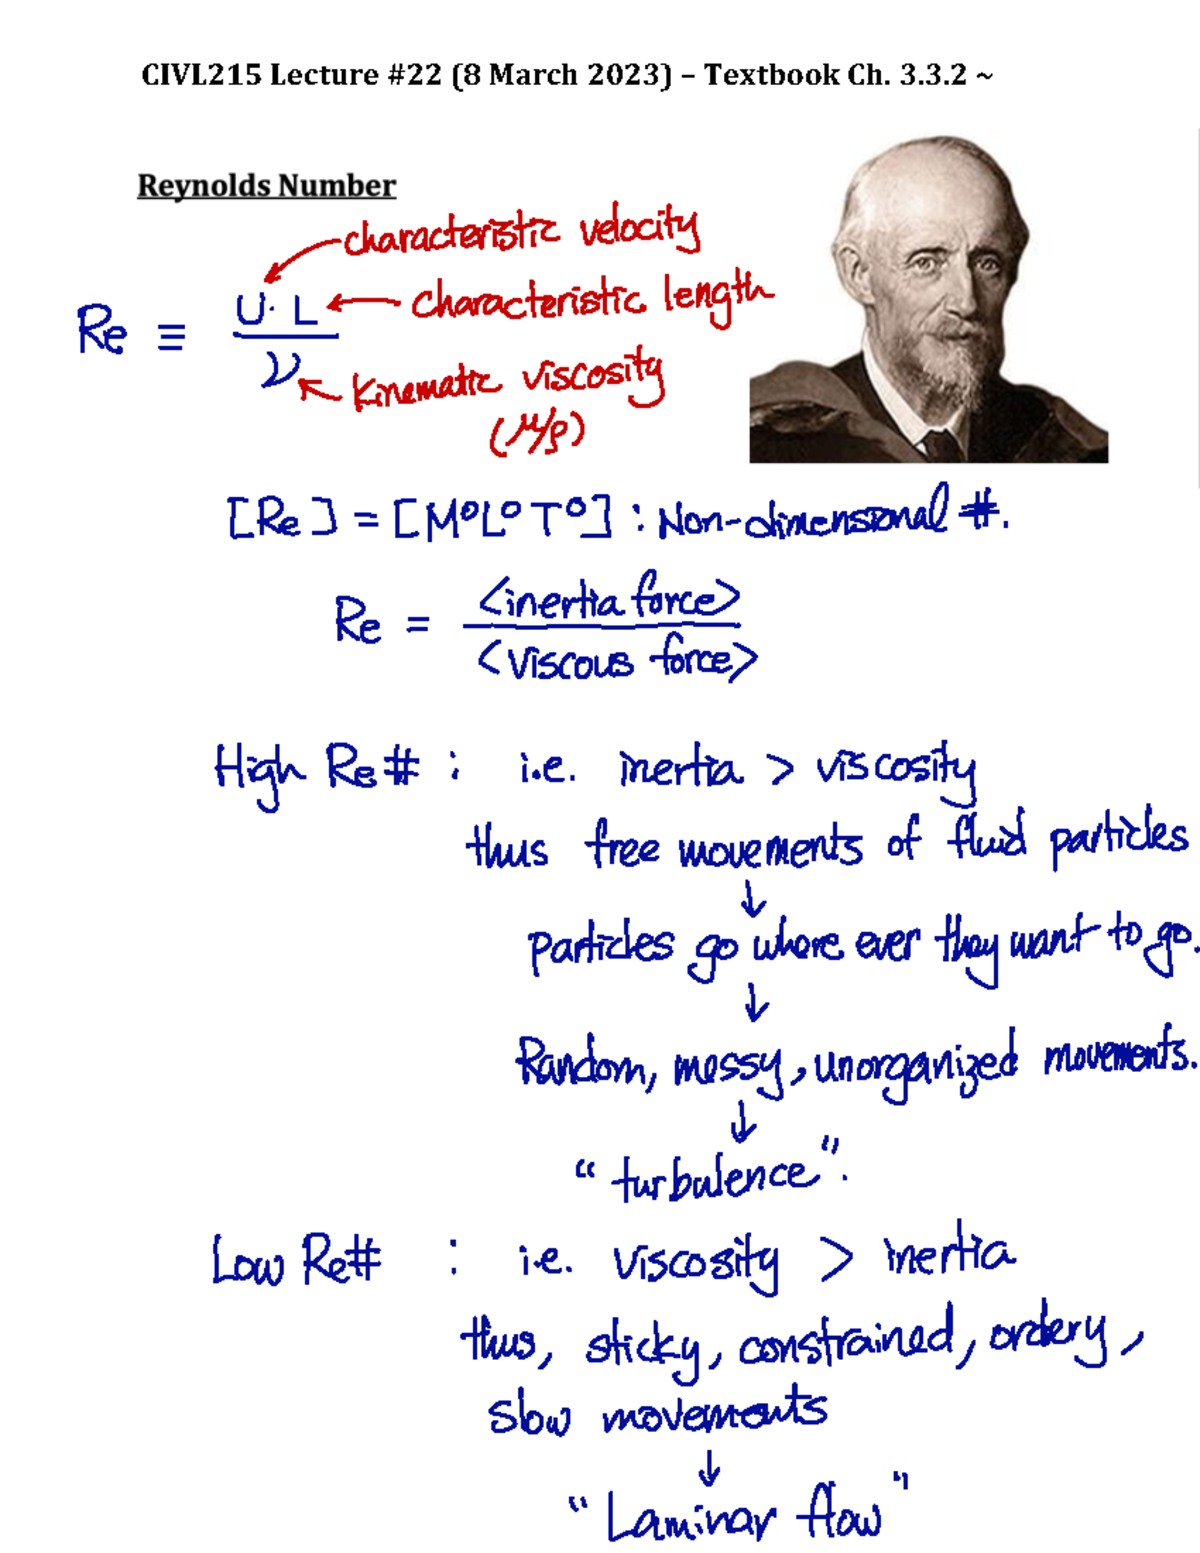 CIVL215 Lecture #22 (8 March 2023) – Textbook Ch. 3.3.2 ~
Reynolds Number
characteristic velocity
Re ≡ U·L / ν
characteristic length
Kinematic viscosity
(μ/ρ)
[Re] = [M⁰L⁰T⁰] : Non-dimensional #.
Re = <inertia force> / <viscous force>
High Re# : i.e. inertia > viscosity
thus free movements of fluid particles
↓
particles go where ever they want to go.
↓
Random, messy, unorganized movements.
↓
"turbulence".
Low Re# : i.e. viscosity > inertia
thus, sticky, constrained, ordery,
slow movements
↓
"Laminar flow"